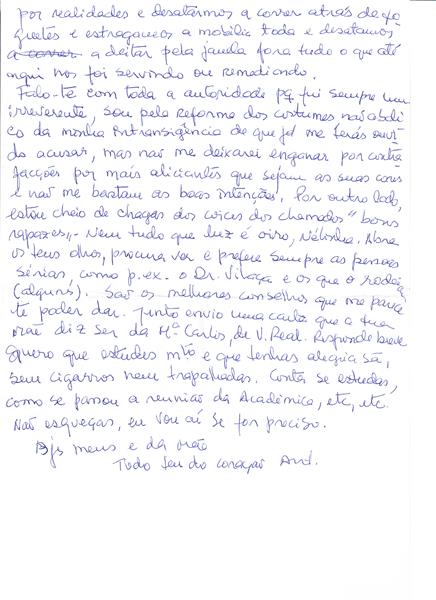 por realidades e desatarmos a correr atrás de fo-
guetes e estragarmos a mobília toda e desatarmos
a correr a deitar pela janela fora tudo o que até
aqui nos foi servindo ou remediando.
Falo-te com toda a autoridade pq fui sempre um
irreverente, sou pela reforma dos costumes não abdi
co da minha intransigência de que já me terás ouvi
do acusar, mas não me deixarei enganar por contra
facções por mais aliciantes que sejam as suas cores
e não me bastam as boas intenções. Por outro lado,
estou cheio de chagas dos coices dos chamados "bons
rapazes". Nem tudo que luz é oiro, Nélinha. Abre
os teus olhos, procura ver e prefere sempre as pessoas
sérias, como p.ex. o Dr. Vilaça e os que o rodeiam
(alguns). São os melhores conselhos que me parece
te poder dar. Junto envio uma carta que a tua
mãe diz ser da Mª Carlos, de V. Real. Responde breve
Quero que estudes mto e que tenhas alegria sã,
sem cigarros nem trapalhadas. Conta se estudas,
como se passou a reunião da Académica, etc, etc.
Não esqueças, eu vou aí se for preciso.
Bjs meus e da mãe
Todo teu do coração